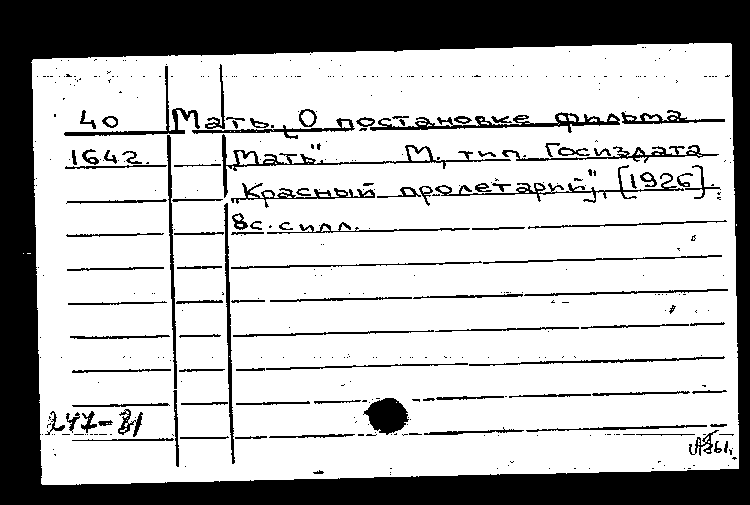 40 Мать. [О постановке фильма
1642. „Мать". М., тип. Госиздата
„Красный пролетарий"], [1926].
8с. с илл.
247-81